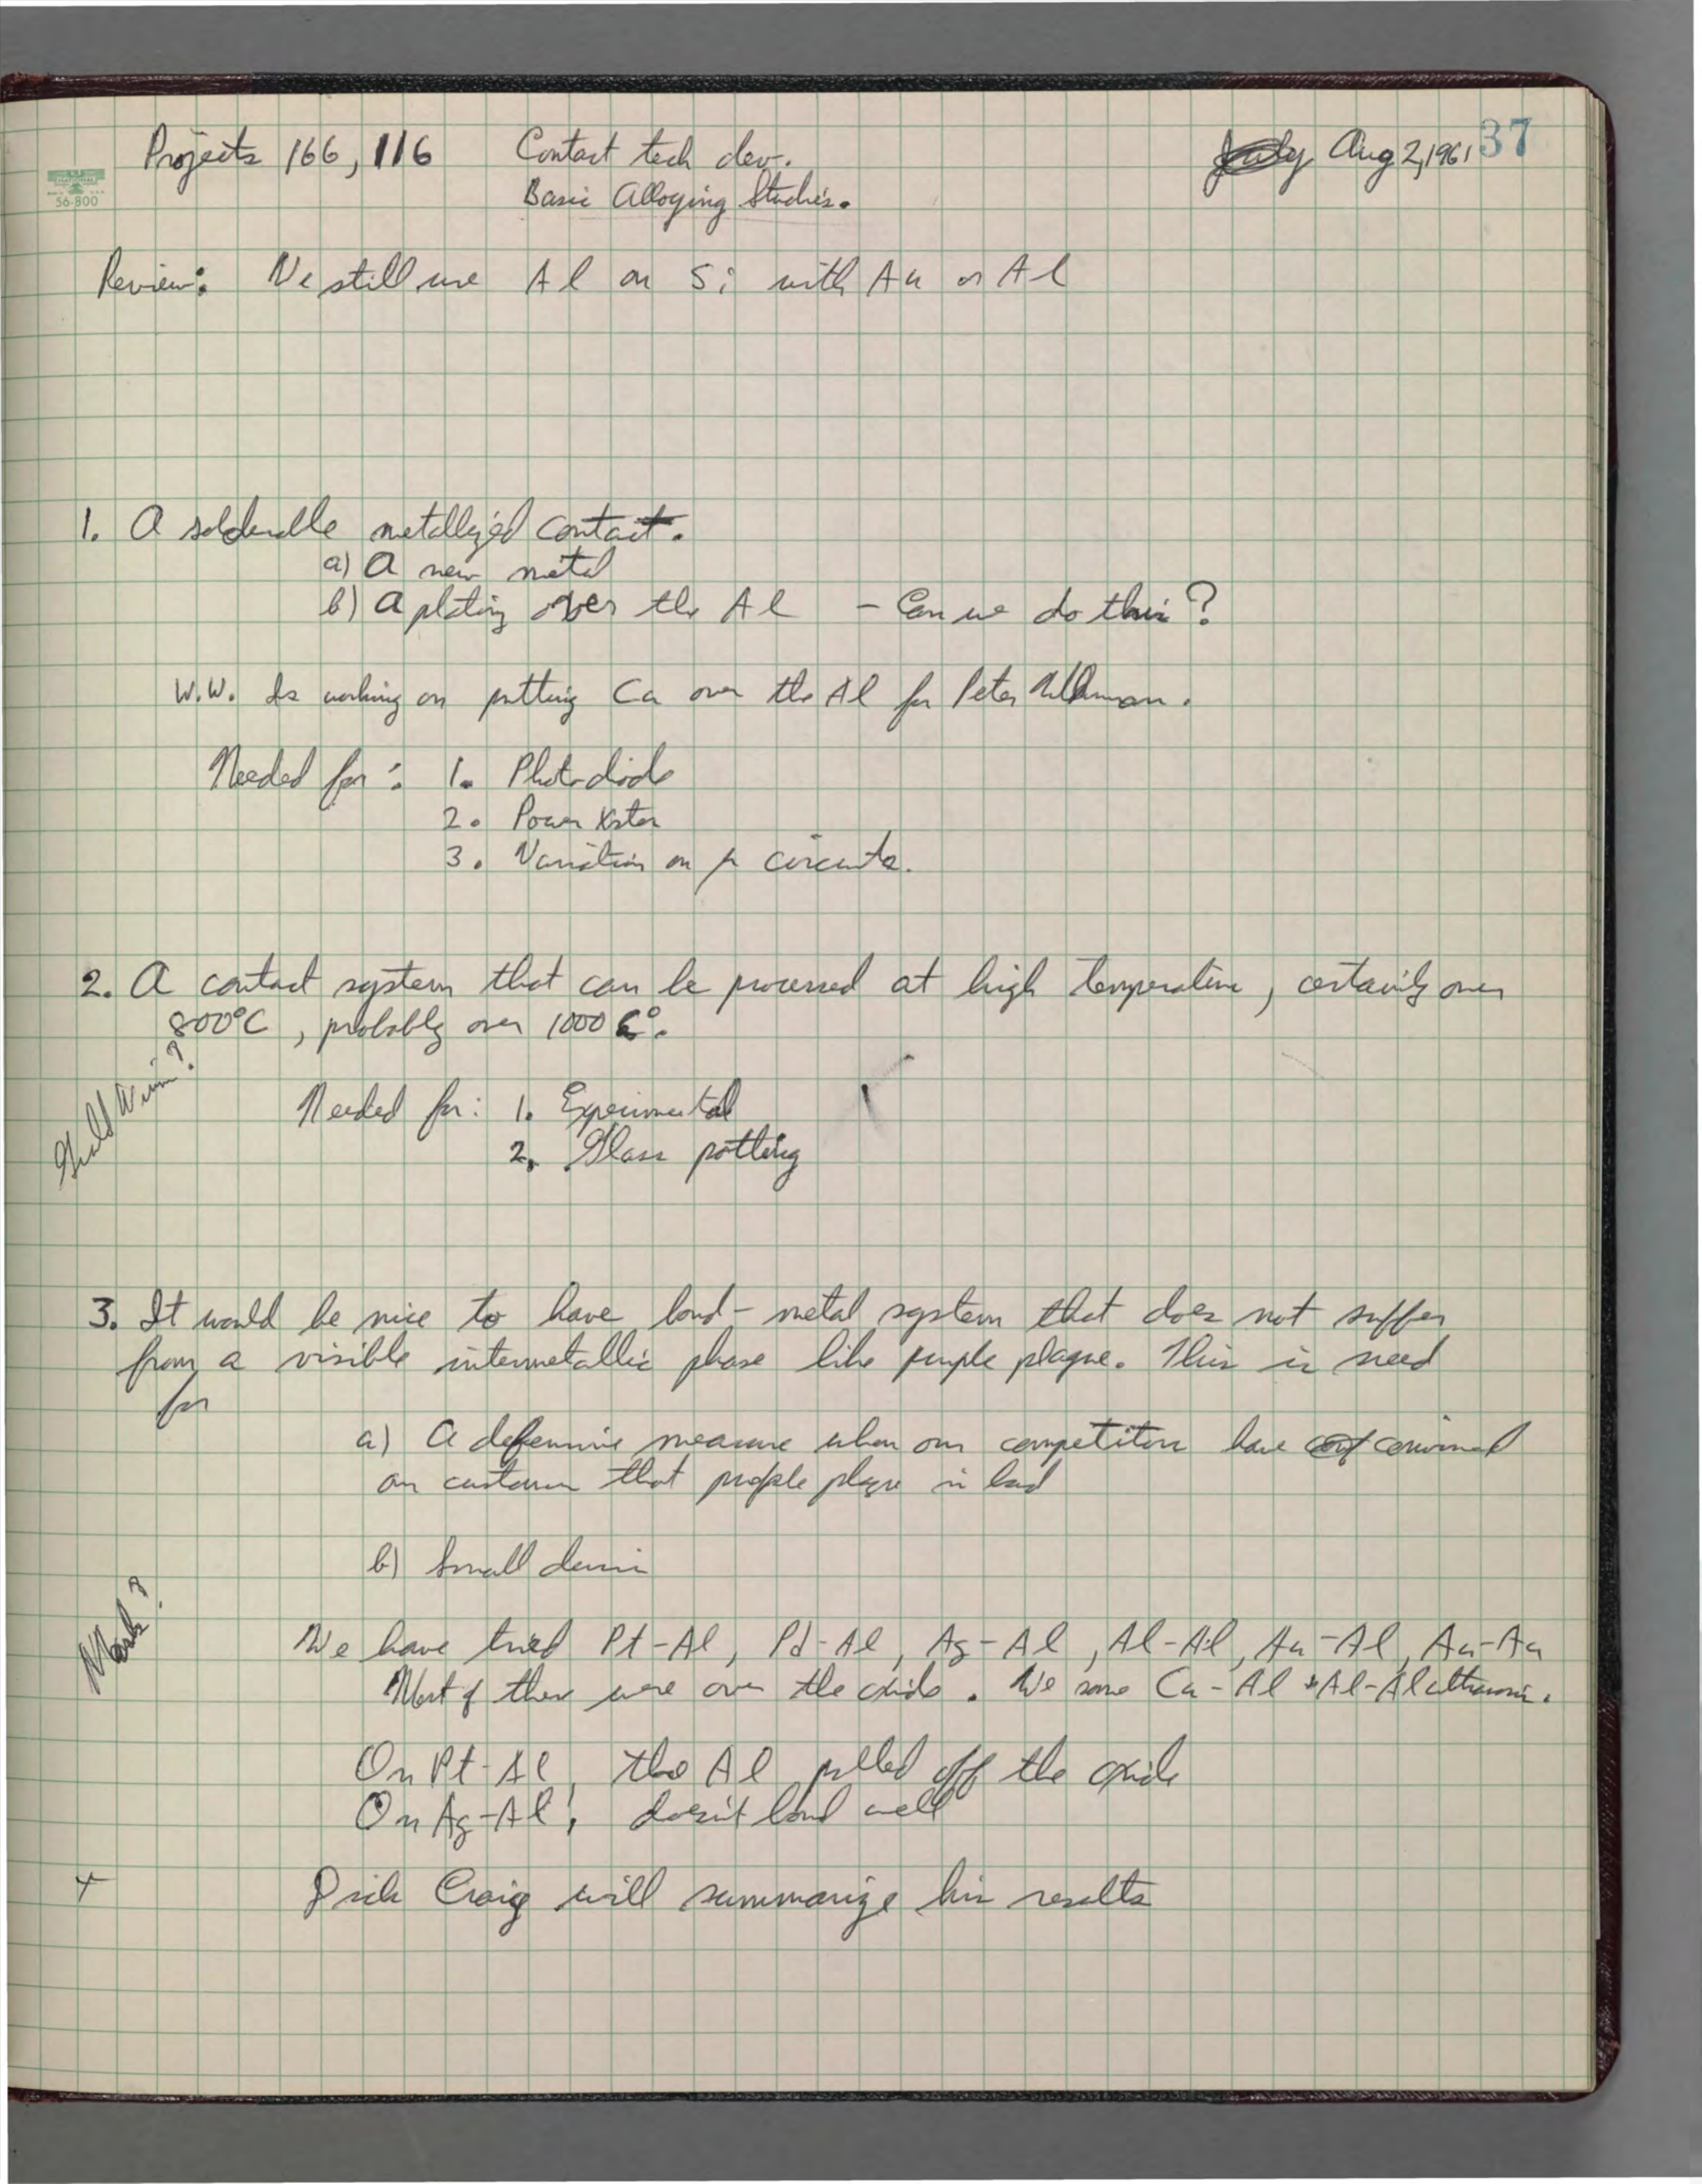 37
Projects 166, 116 Contact tech dev. July Aug 2, 1961
Basic Alloying Studies.
56-800
Review: We still use Al on Si with Au or Al
1. A solderable metallized contact.
a) A new metal
b) A plating over the Al - Can we do this?
W.W. is working on putting Cu over the Al for Peter
Needed for: 1. Photodiode
2. Power Xstor
3. Variation on µ circuits.
2. A contact system that can be processed at high temperature, certainly over
800°C, probably over 1000 C°.
Needed for: 1. Experimental
2. Glass potting
3. It would be nice to have bond-metal system that does not suffer
from a visible intermetallic phase like purple plague. This is need
for
a) A defensive measure when our competitors have conf convinced
our customer that purple plague is bad
b) Small
We have tried Pt-Al, Pd-Al, Ag-Al, Al-Al, Au-Al, Au-Au
Most of these were over the oxide. We some Cu-Al + Al-Al ultrasonic.
On Pt-Al, the Al pulled off the oxide
On Ag-Al, doesn't bond well
+ Dick Craig will summarize his results